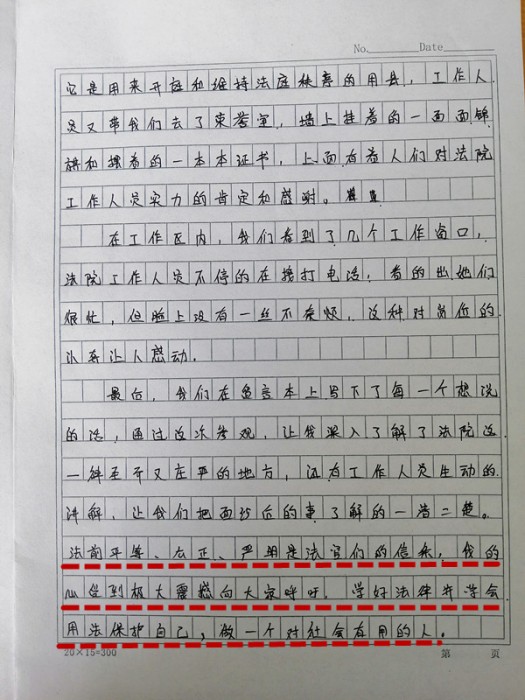 No.        Date
它是用来开庭和维持法庭秩序的用具，工作人
员又带我们去了荣誉室，墙上挂着的一面面锦
旗和摆着的一本本证书，上面有着人们对法院
工作人员实力的肯定和感谢。
在工作区内，我们看到了几个工作窗口，
法院工作人员不停的在接打电话，看的出她们
很忙，但脸上没有一丝不耐烦，这种对岗位的
认真让人感动。
最后，我们在留言本上写下了每一个想说
的话，通过这次参观，让我深入了解了法院这
一神圣而又庄严的地方，还有工作人员生动的
讲解，让我们把面纱后的事了解的一清二楚。
法前平等、公正、严明是法官们的信条，我的
心受到极大震撼向大家呼吁。学好法律并学会
用法保护自己，做一个对社会有用的人。
20×15=300        第   页